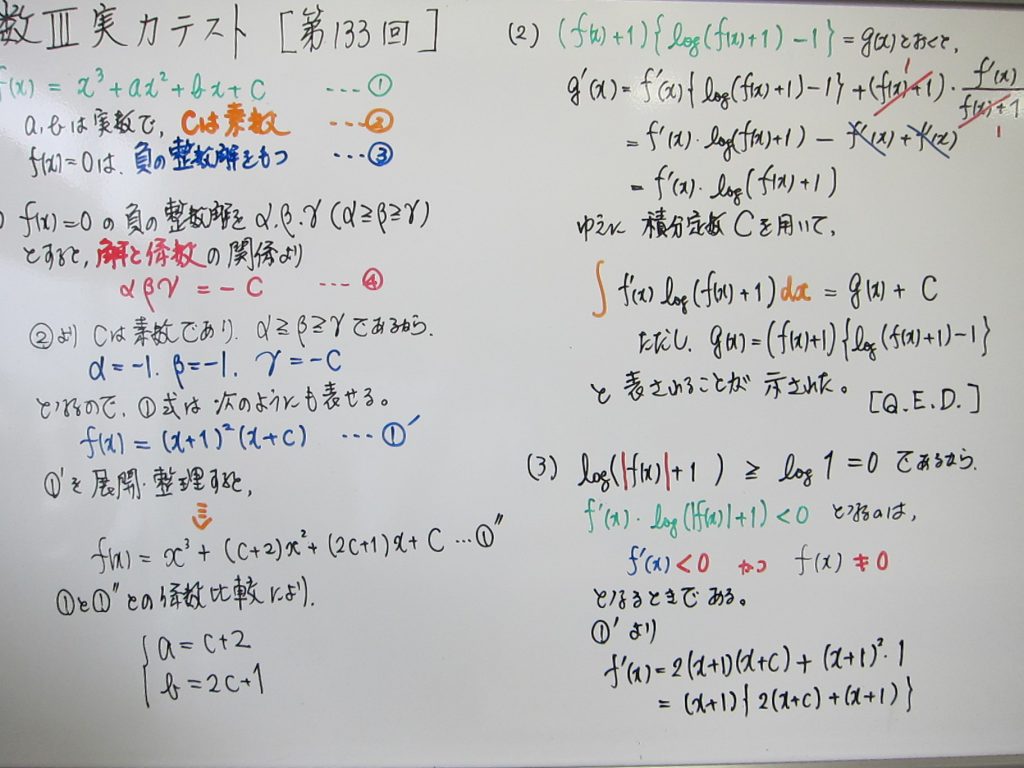 数Ⅲ実力テスト [第133回]
f(x) = x³ + ax² + bx + c ・・・①
a, b は実数で, cは素数 ・・・②
f(x)=0は, 負の整数解をもつ ・・・③
) f(x)=0 の負の整数解を α, β, γ (α≧β≧γ)
とすると, 解と係数の関係より
αβγ = -c ・・・④
②より cは素数であり, α≧β≧γであるから,
α=-1, β=-1, γ=-c
となるので, ①式は次のようにも表せる。
f(x) = (x+1)²(x+c) ・・・①′
①′を展開・整理すると,
f(x) = x³ + (c+2)x² + (2c+1)x + c ・・・①″
①と①″との係数比較により,
a = c+2
b = 2c+1
(2) (f(x)+1){log(f(x)+1)-1} = g(x)とおくと,
g′(x) = f′(x){log(f(x)+1)-1} + (f(x)+1)・f′(x)/(f(x)+1)
= f′(x)・log(f(x)+1) - f′(x) + f′(x)
= f′(x)・log(f(x)+1)
ゆえに 積分定数 C を用いて,
∫f′(x)log(f(x)+1)dx = g(x) + C
ただし, g(x) = (f(x)+1){log(f(x)+1)-1}
と表されることが示された。
[Q.E.D.]
(3) log(|f(x)|+1) ≧ log1 = 0 であるから,
f′(x)・log(|f(x)|+1)<0 となるのは,
f′(x)<0 かつ f(x)≠0
となるときである。
①′より
f′(x) = 2(x+1)(x+c) + (x+1)²・1
= (x+1){2(x+c)+(x+1)}